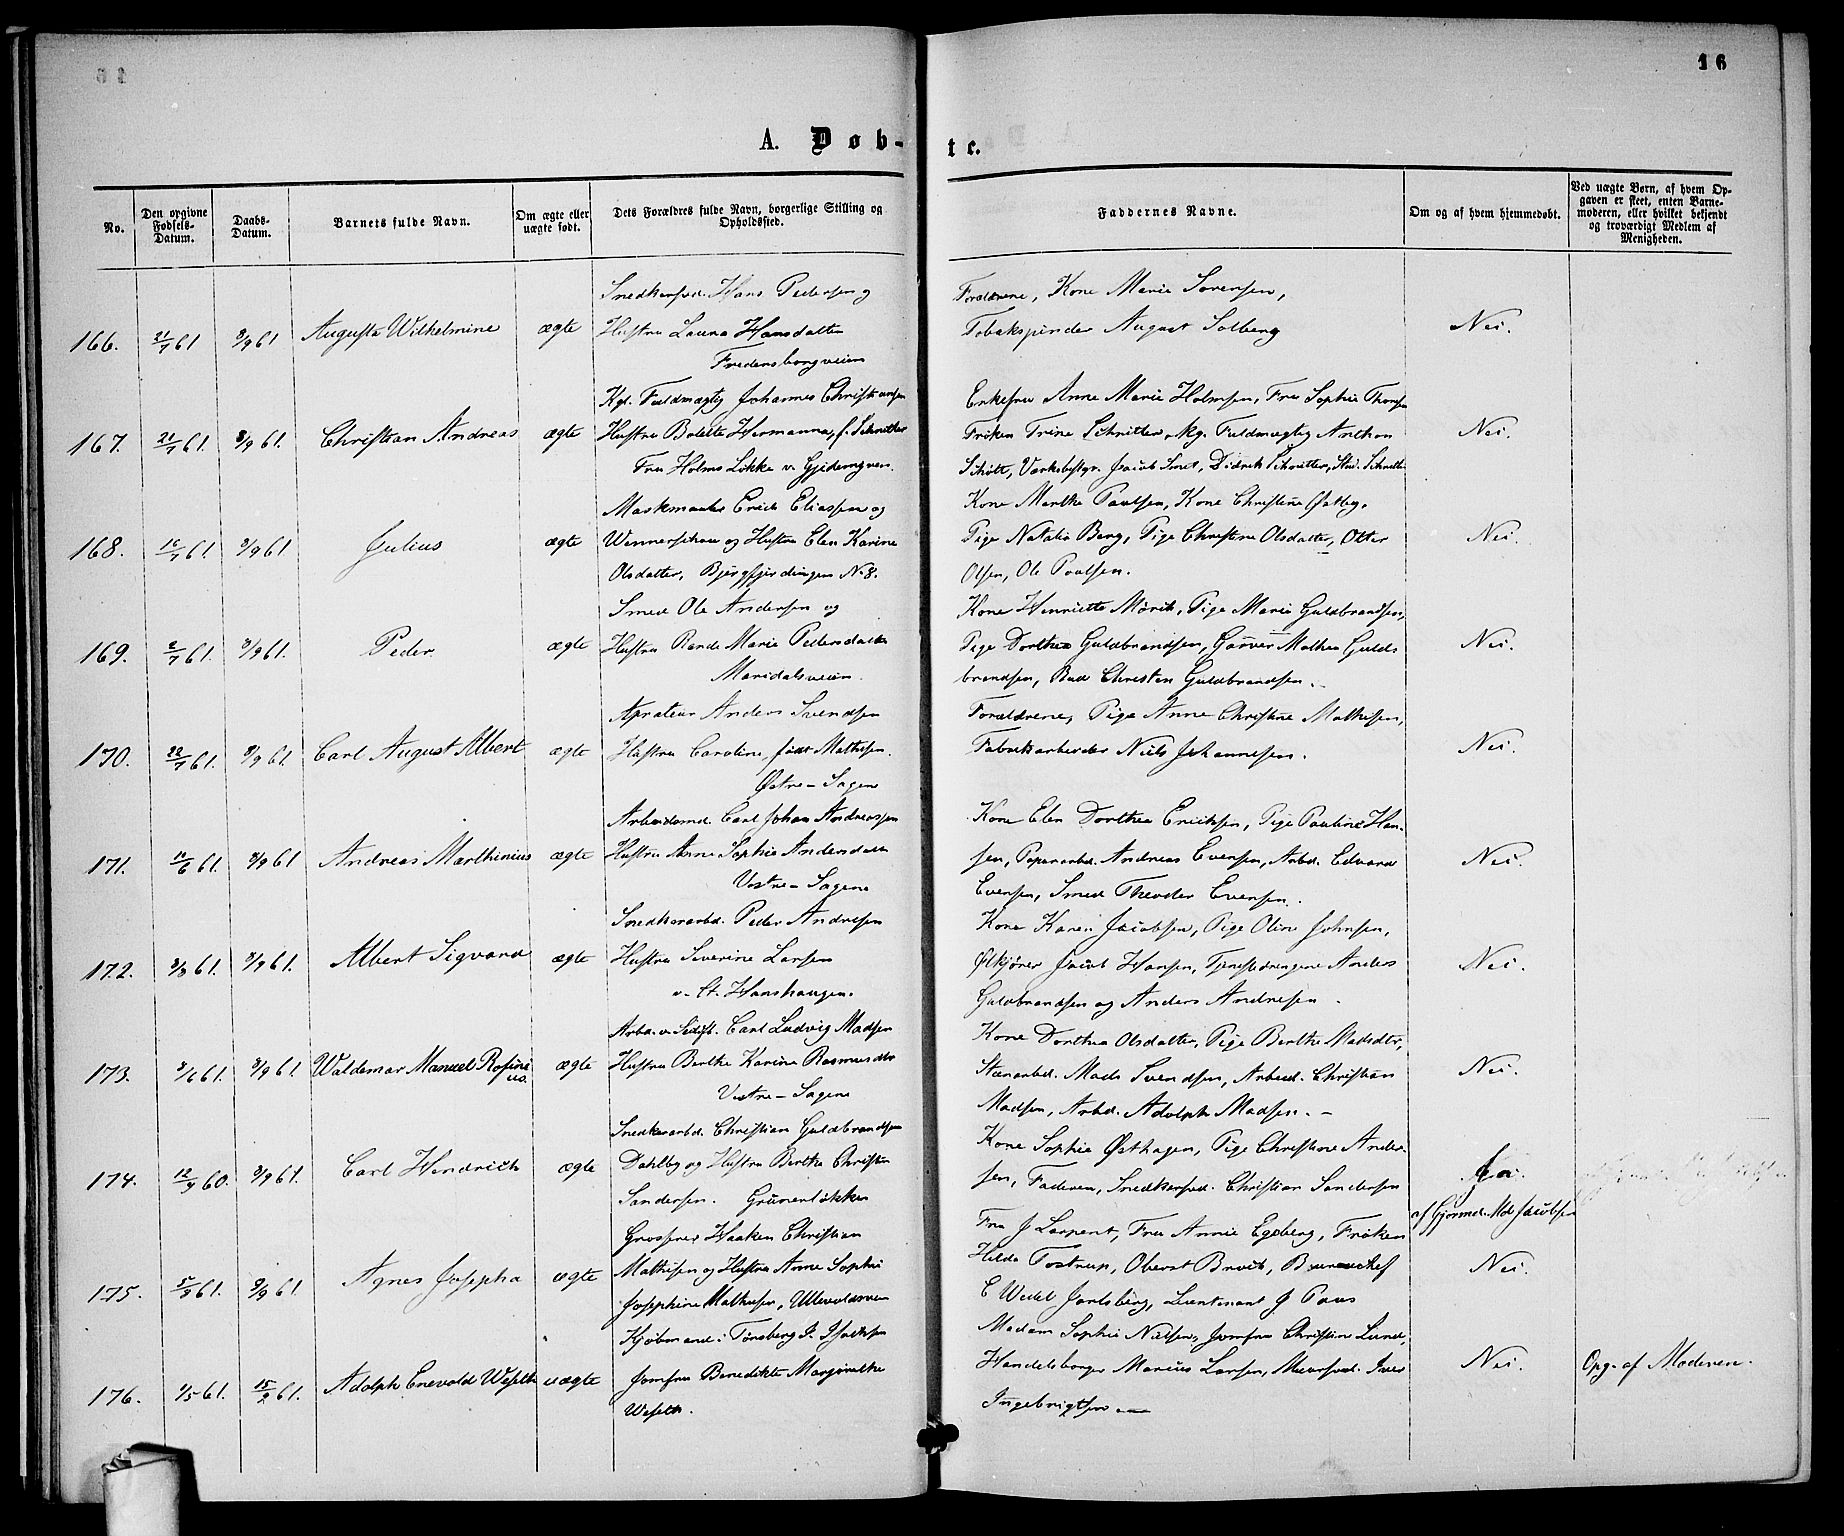 16
A. Døb-
te.
No.
Den opgivne Fødsels-Datum.
Daabs-Datum.
Barnets fulde Navn.
Om ægte eller uægte født.
Dets Forældres fulde Navn, borgerlige Stilling og Opholdssted.
Faddernes Navne.
Om og af hvem hjemmedøbt.
Ved uægte Børn, af hvem Opgaven er skeet, enten Barnemoderen, eller hvilket bekjendt og troværdigt Medlem af Menigheden.
Snedkersvd. Hans Pedersen og
Foræld­rene, Kone Marie Sørensen,
166. 21/7 61 8/9 61 Augusta Wilhelmine ægte Hustru Laura Hansdatter
Tobakspinder August Solberg Nei.
Fredensborgveien
Kgl. Fuldmægtig Johannes Christiansen
Enkefru Anne Marie Holmsen, Fru Sophie Thorsen
167. 21/7 61. 8/9 61. Christian Andreas ægte Hustru Bolette Hermanna, f. Schnitler
Frøken Trine Schnitler, Kg. Fuldmægtig Anthon Nei.
Fru Holms Løkke v. Gjidemyrven.
Schøtt, Værksbestyr. Jacob Smet, Didrik Schnitler, Stud. Schnitl
Maskmester Erick Eliassen og
Kone Marthe Paulsen, Kone Christine Østby,
168. 16/7 61. 8/9 61 Julius ægte Wennerschou og Hustru Elen Karine
Pige Natalia Berg, Pige Christine Olsdatter, Otter Nei.
Olsdatter, Bjergfjerdingen No 8.
Olsen, Ole Paulsen.
Smed Ole Andersen og
Kone Henriette Mørik, Pige Marie Guldbrandsen,
169. 2/7 61. 8/9 61. Peder ægte Hustru Rande Marie Pedersdatter
Pige Dorthea Guldbrandsen, Garver Mathea Guld- Nei.
Maridalsveien.
brandsen, Bud Christen Guldbrandsen. -
Aprateur Anders Svendsen
Forældrene, Pige Anne Christine Mathisen,
170. 22/7 61. 8/9 61. Carl August Albert ægte Hustru Caroline, født Mathisen.
Fabrikarbeider Niels Johannesen. Nei.
Østre - Sagene
Arbeidsmd. Carl Johan Andreassen
Kone Elen Dorthea Eriksen, Pige Pauline Han-
171. 11/6 61. 8/9 61. Andreas Marthinius ægte Hustru Anne Sophie Andersdatter
sen, Papirarbd. Andreas Evensen, Arbd. Edvard Nei.
Vestre - Sagene
Evensen, Smed Theodor Evensen.
Snedkerarbd. Peder Andresen
Kone Karen Jacobsen, Pige Oline Johnsen,
172. 3/3 61. 8/9 61. Albert Sigvard ægte Hustru Severine Larsen
Ølkjører Jacob Hansen, Tjenestedrengene Anders Nei.
v. St. Hanshaugen.
Guldbrandsen og Anders Andresen.
Arbd. v. Seilf. Carl Ludvig Madsen
Kone Dorthea Olsdatter, Pige Berthe Madsdtr,
173. 3/6 61. 8/9 61. Waldemar Manuel Rosini- us. ægte Hustru Berthe Karine Rasmusdtr
Stenarbd. Mads Svendsen, Arbeid. Christian Nei.
Vestre - Sagene
Madsen, Arbd. Adolph Madsen. -
Snedkerarbd. Christian Guldbrandsen
Kone Sophie Østhagen, Pige Christine Ander-
174. 12/9 60. 8/9 61. Carl Hendrich ægte Dahlby og Hustru Berthe Christin
sen, Faderen, Snedkersvd. Christian Sandersen Ja.
Sandersen. Grünerløkken
af Gjormd. Md. Jacobsen
Grosserer Haaken Christian
Fru J Larpent, Fru Annie Egeberg, Frøken
175. 15/3 61. 9/9 61. Agnes Josepha ægte Mathisen og Hustru Anne Sophie
Hilda Tostrup, Oberst Broch, Bureauchef Nei.
Josephine Mathisen, Ullevoldsveien
C Wedel Jarlsberg, Lieutenant J Paus
Kjøbmand i Tønsberg P. Isaksen
Madam Sophie Nielsen, Jomfru Christine Lund,
176. 9/5 61. 15/9 61. Adolph Enevold Weseth uægte Jomfru Benedikte Margrethe
Handelsborger Marius Larsen, Muursvd. Iver Nei. Opg. af Moderen.
Weseth.
Ingebrigtsen -